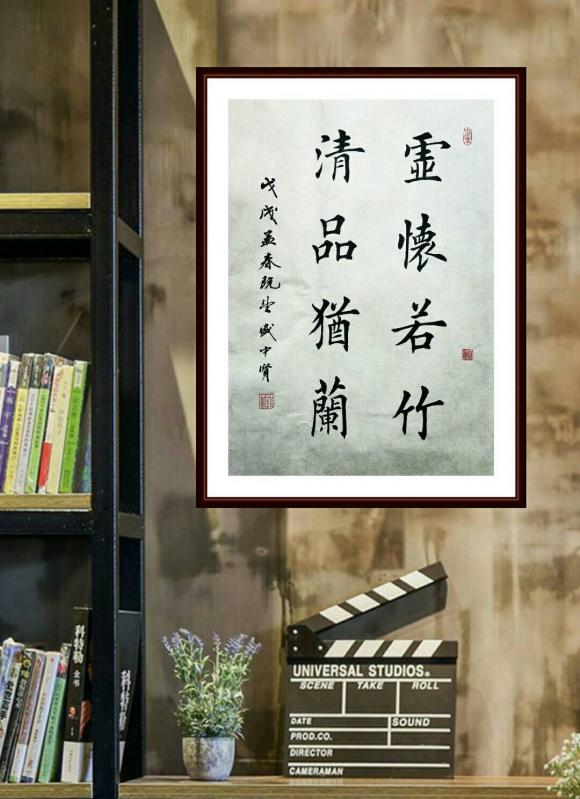 虛懷若竹
清品猶蘭
戊戌孟春既望盛中賢
科特勒
全书
科特勒
UNIVERSAL STUDIOS®
SCENE TAKE ROLL
DATE SOUND
PROD.CO.
DIRECTOR
CAMERAMAN